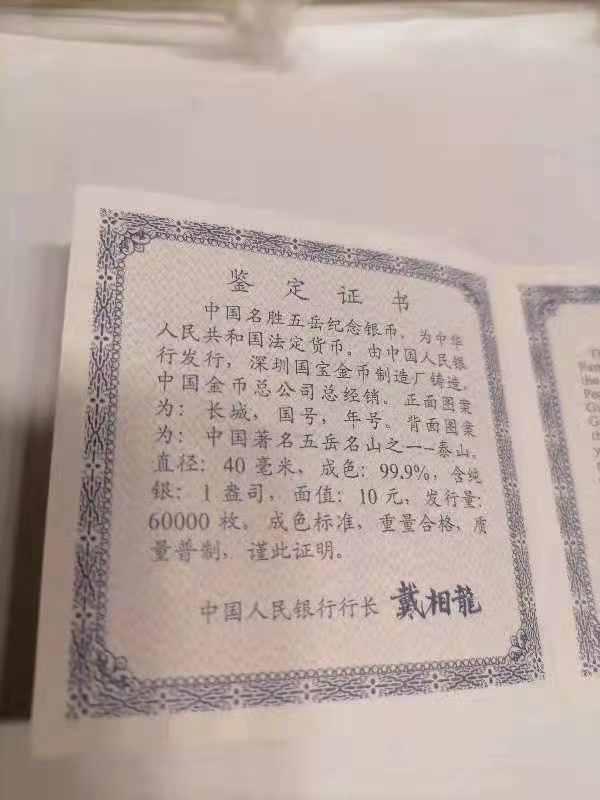 鉴定证书
中国名胜五岳纪念银币，为中华
人民共和国法定货币。由中国人民银
行发行，深圳国宝金币制造厂铸造，
中国金币总公司总经销。正面图案
为：长城，国号，年号。背面图案
为：中国著名五岳名山之一--泰山。
直径：40毫米，成色：99.9%，含纯
银：1盎司，面值：10元，发行量：
60000枚。成色标准，重量合格，质
量普制，谨此证明。
中国人民银行行长 戴相龍